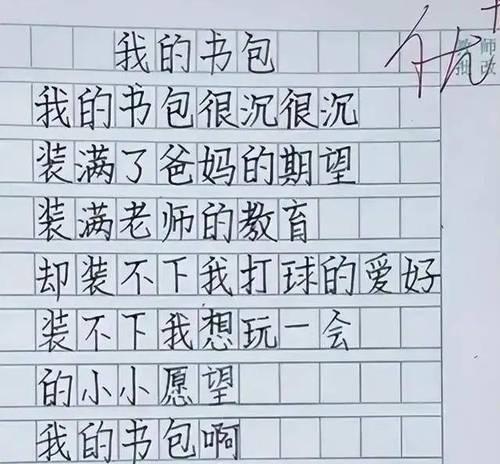 我的书包
优+
教师
批改
我的书包很沉很沉
装满了爸妈的期望
装满老师的教育
却装不下我打球的爱好
装不下我想玩一会
的小小愿望
我的书包啊